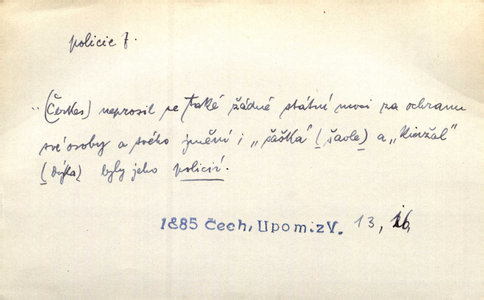 policie f.
„(Čerkes) neprosil se také žádné státní moci za ochranu
své osoby a svého jmění i „šáška" (šavle) a „kinžal"
(dýka) byly jeho policií.
1885 Čech, Upom. z V. 13, 16,